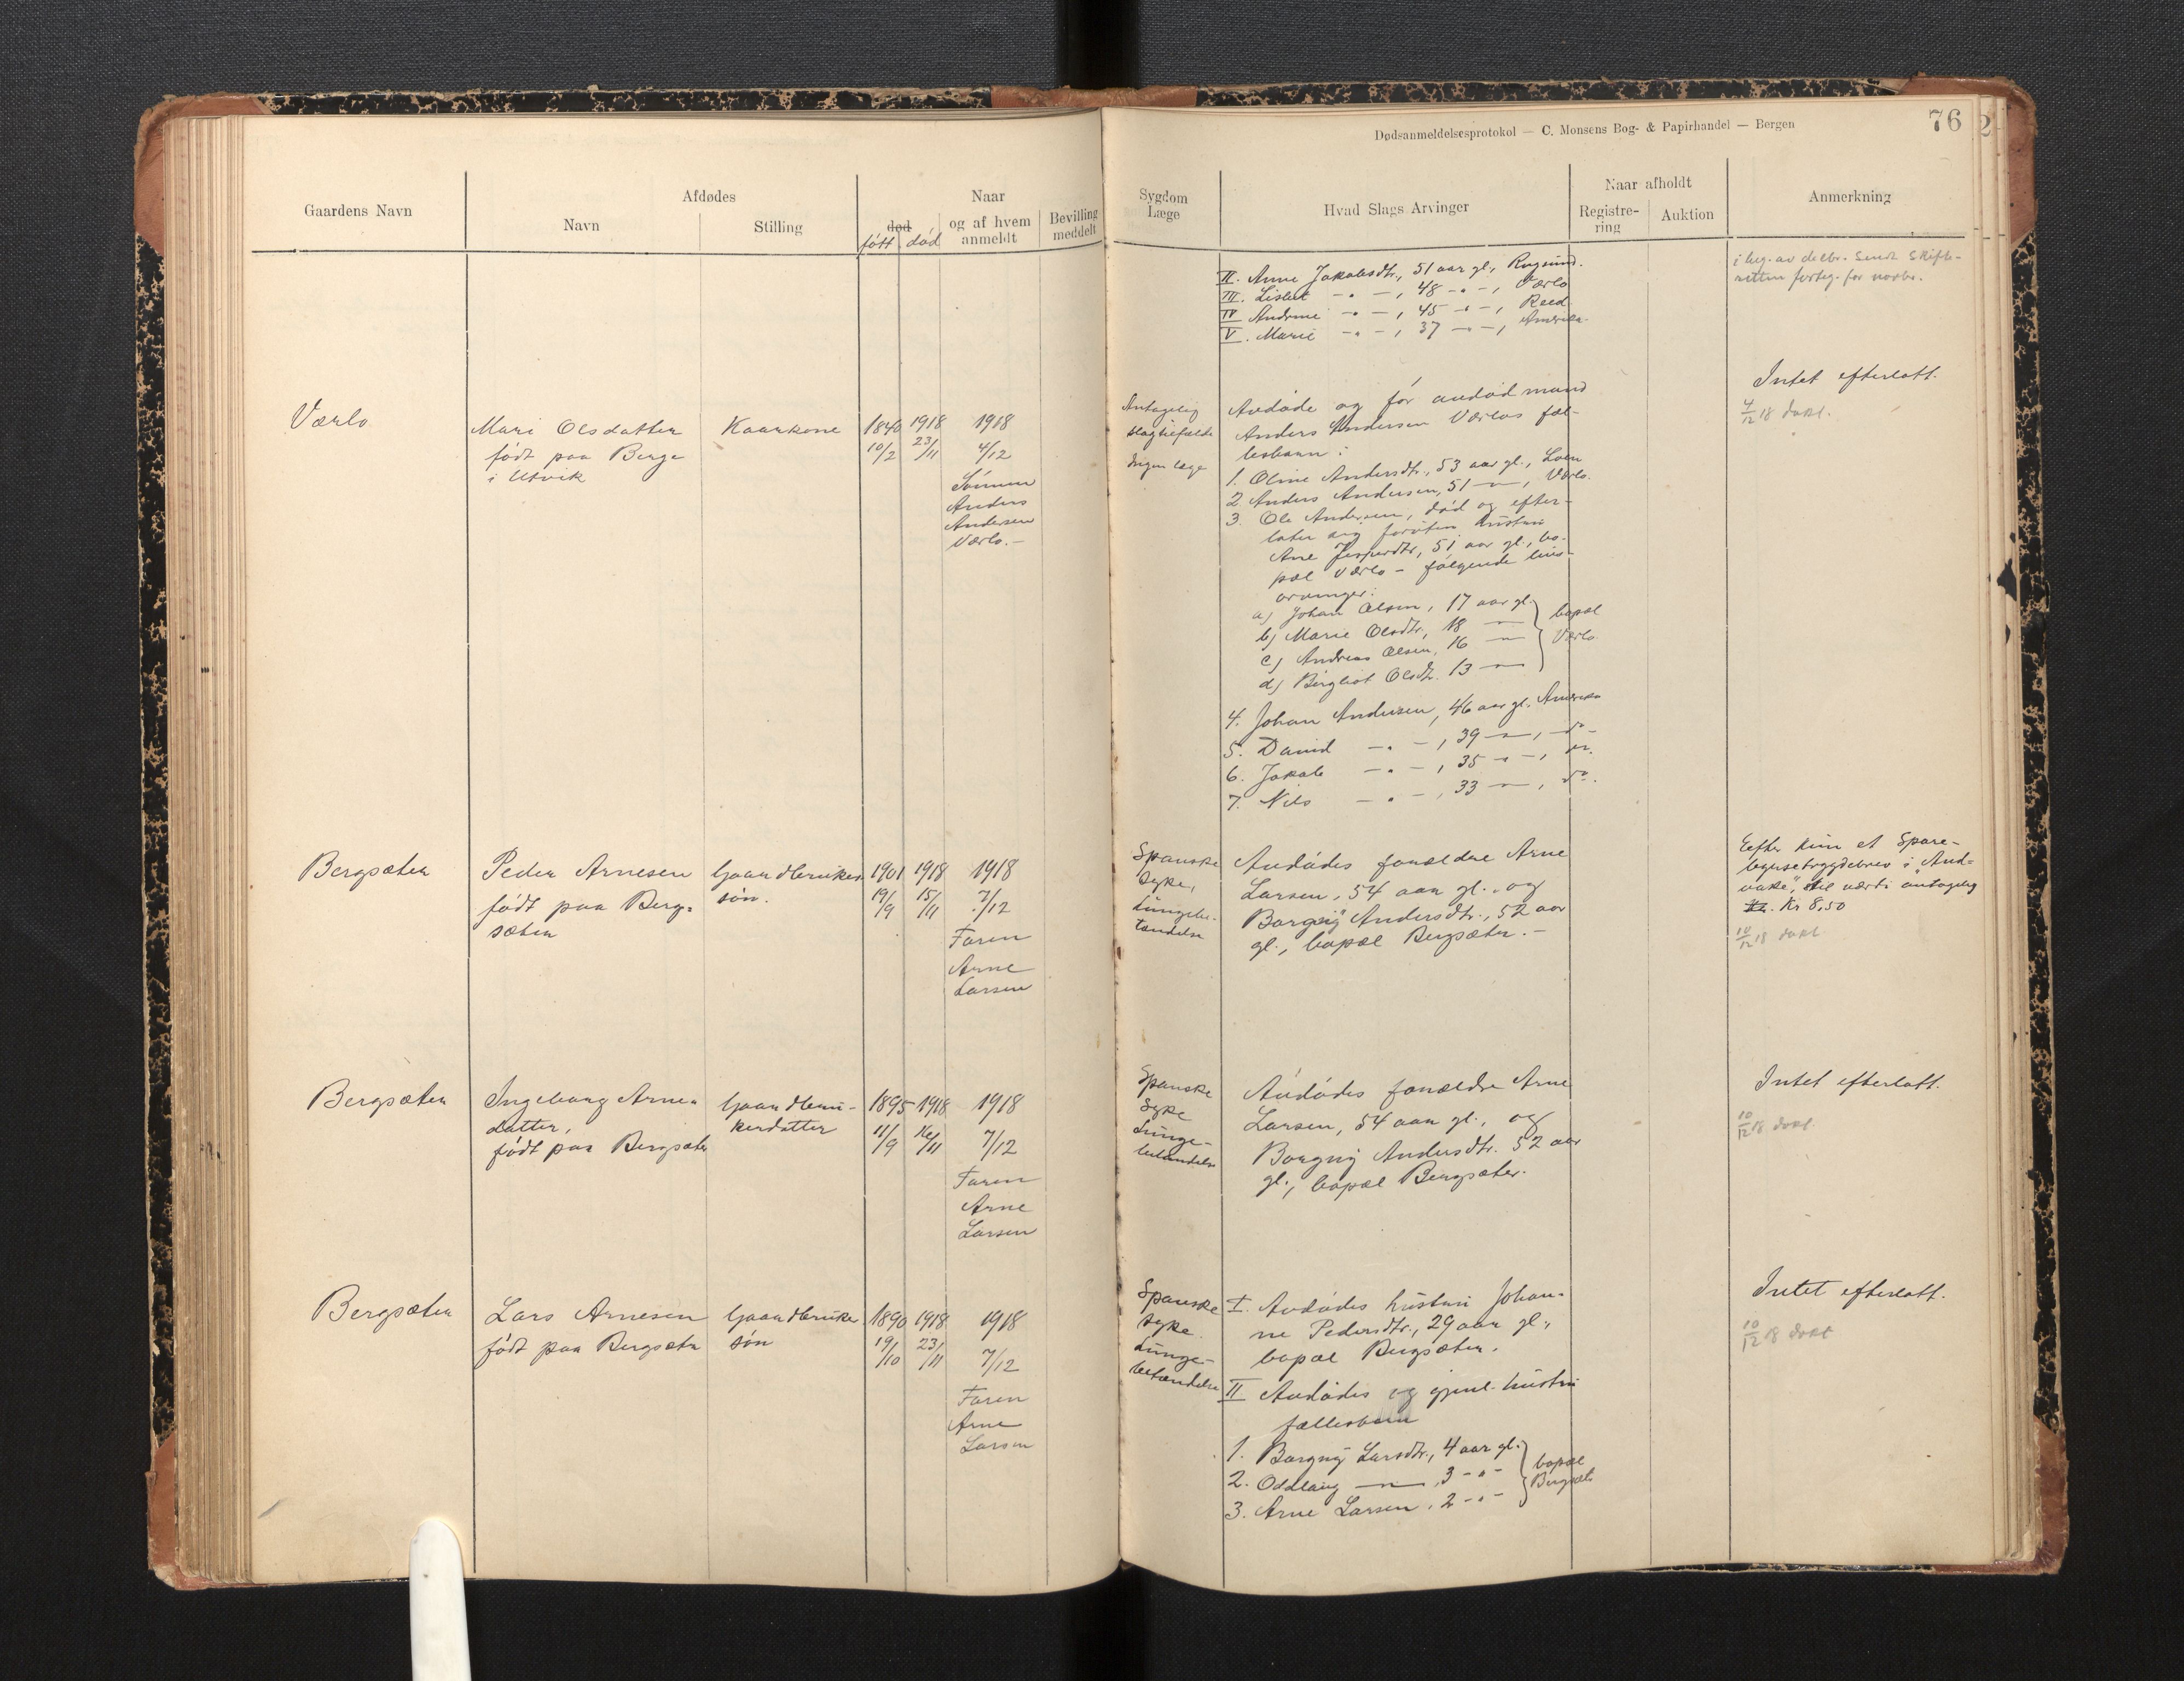 Dødsanmeldelsesprotokol — C. Monsens Bog- & Papirhandel — Bergen
76
2
Gaardens Navn
Afdødes
Navn
Stilling
død
født død
Naar
og af hvem
anmeldt
Bevilling
meddelt
Sygdom
Læge
Hvad Slags Arvinger
Naar afholdt
Registre-
ring
Auktion
Anmerkning
II. Anne Jakobsdtr., 51 aar gl., Rugsund.
III. Lisbet -"- , 48 -"- , Værlo
IV Andrine -"- , 45 -"- , Reed
V. Marie -"- , 37 -"- , Amerika.
i hug. av delbr. Sendt Skifte-
retten
Værlo
Mari Olsdatter
født paa Berge
i Utvik
Kaarkone
1840
10/2
1918
23/11
1918
4/12
Sønnen
Anders
Andersen
Værlo.-
Antagelig
slagtilfælde
Ingen læge
Avdøde og før avdød mand
Anders Andersen Værlos fæl-
lesbarn:
1. Oline Andersdtr., 53 aar gl., Loen
2. Anders Andersen, 51 -"- , Værlo.
3. Ole Andersen, død og efter-
later sig foruten hustru
Ane Jespersdtr, 51 aar gl., bo-
pæl Værlo - følgende livs-
arvinger:
a) Johan Olsen, 17 aar gl.
b) Marie Olsdtr., 18 -"-
c) Andreas Olsen, 16 -"-
d) Bergliot Olsdtr. 13 -"-
bopæl
Værlo.
4. Johan Andersen, 46 aar gl. Amerika
5. David -"- , 39 -"- , do-
6. Jakob -"- , 35 -"- , do.
7. Nils -"- , 33 -"- , do.
Intet efterlatt.
4/12 18 dokt.
Bergsæter
Peder Arnesen
født paa Berg=
sæter
Gaardbruker
søn.
1901
19/9
1918
15/11
1918
7/12
Faren
Arne
Larsen
Spanske
syke,
Lungebe-
tændelse
Avdødes forældre Arne
Larsen, 54 aar gl., og
Borgny Andersdtr., 52 aar
gl., bopæl Bergsæter.-
Efter kun et Spare-
bøssetrygdebrev i "And=
vake", til værdi antagelig
Kr. Kr 8,50
10/12 18 dokt.
Bergsæter
Ingeborg Arne=
datter,
født paa Bergsæter
Gaardbru-
kerdatter
1895
11/9
1918
16/11
1918
7/12
Faren
Arne
Larsen
Spanske
Syke
Lunge-
betændelse
Avdødes forældre Arne
Larsen, 54 aar gl., og
Borgny Andersdtr. 52 aar
gl., bopæl Bergsæter.
Intet efterlatt.
10/12 18 dokt.
Bergsæter
Lars Arnesen
født paa Bergsæter
Gaardbruker
søn
1890
19/10
1918
23/11
1918
7/12
Faren
Arne
Larsen
Spanske
syke.
Lunge-
betændelse
I. Avdødes hustru Johan-
ne Pedersdtr., 29 aar gl.,
bopæl Bergsæter.
II Avdødes og gjenl. hustru
fællesbarn
1. Borgny Larsdtr., 4 aar gl.
2. Oddlaug -"- , 3 -"-
3. Arne Larsen, 2 -"-
bopæl
Bergsæter
Intet efterlatt.
10/12 18 dokt